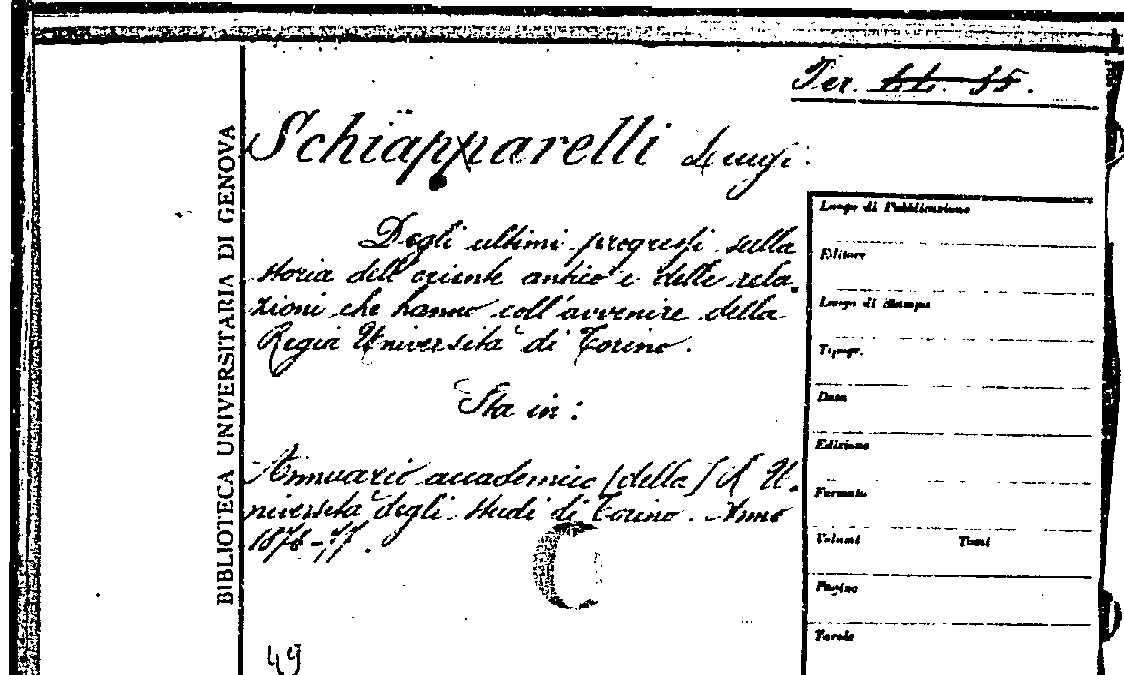 Per. LL. 55.
Schiapparelli Luigi.
Degli ultimi progressi sulla
storia dell'oriente antico e delle rela-
zioni che hanno coll'avvenire della
Regia Università di Torino.
Sta in:
Annuario accademico [della] R. U-
niversità degli studi di Torino. Anno
1876-77.
C
49
BIBLIOTECA UNIVERSITARIA DI GENOVA
Luogo di Pubblicazione
Editore
Luogo di Stampa
Tipogr.
Data
Edizione
Formato
Volumi Tomi
Pagine
Tavole